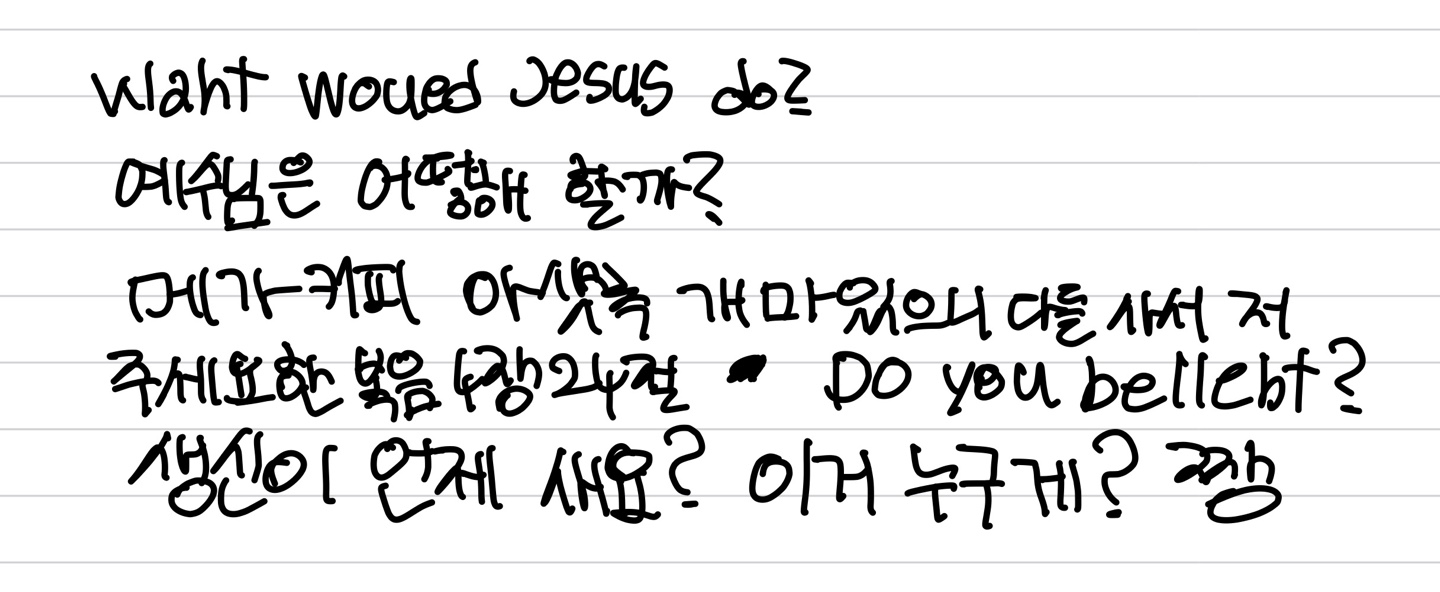 Waht woued Jesus do?
예수님은 어떻해 할까?
메가커피 아샷추 개마있으니 다들 사서 저
주세요한 복음 4장24절 Do you bellebt?
생신이 언제 새요? 이거 누구게? 짱